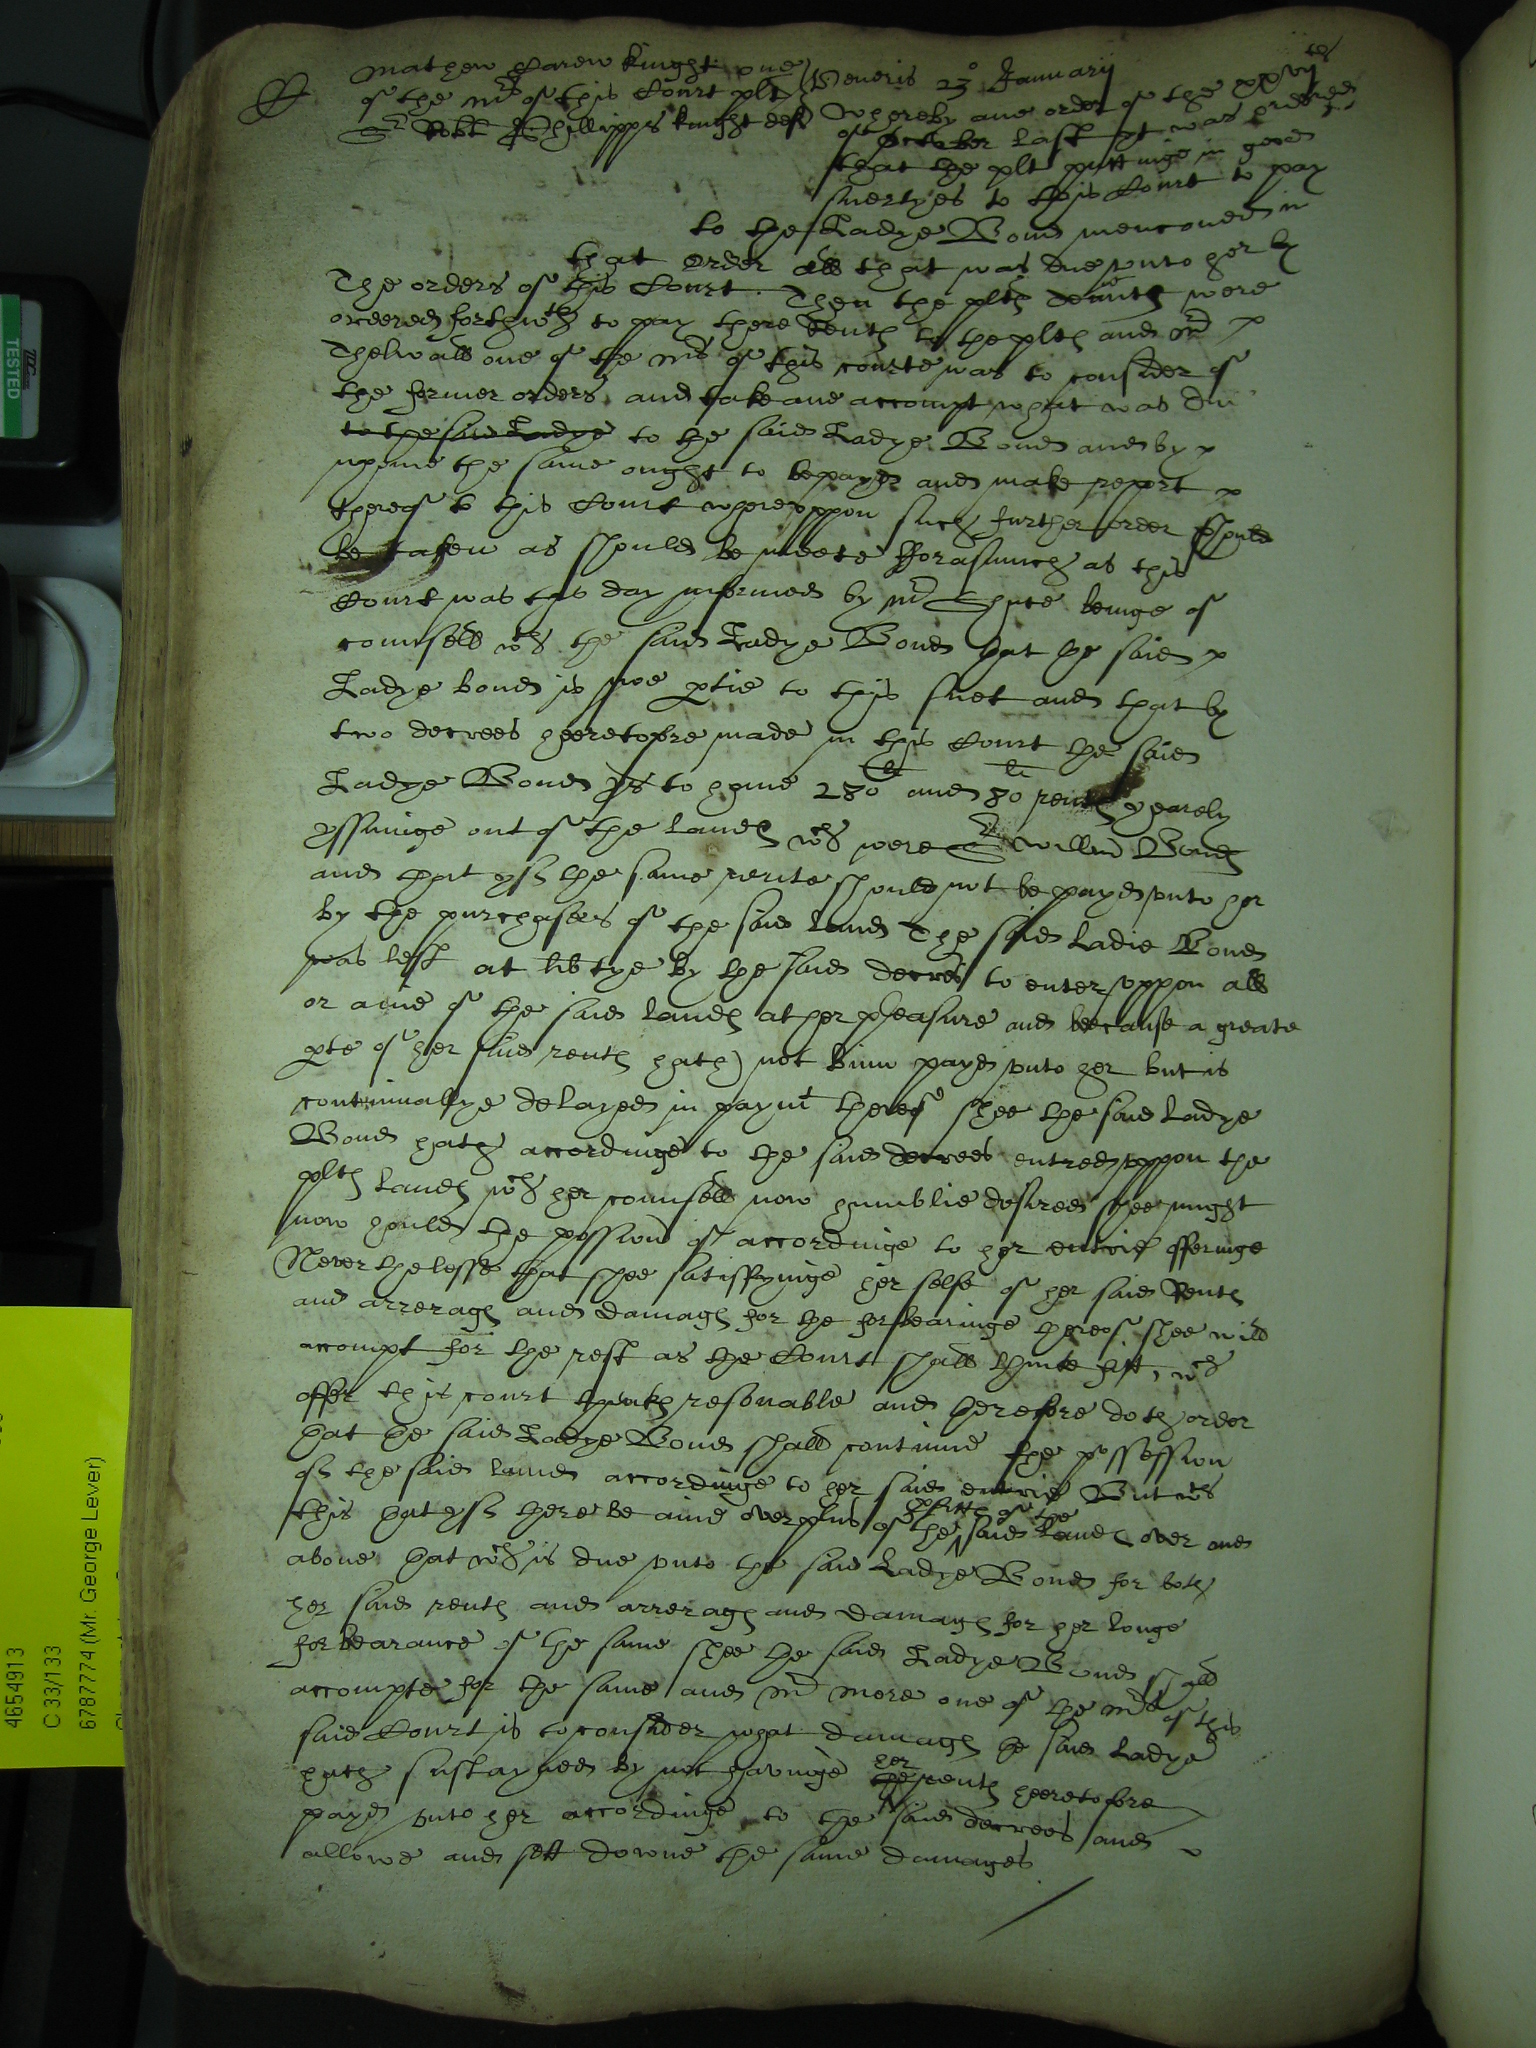 Mathew Carew knight one
of the Mrs of this Court plt
Sr Robt Phillipps knight deft
Veneris 23o Januarij
Whereby one order of the xxvijth
of October last yt was ordered
that the plt puttinge in good
suertyes to this Court to pay
to the Ladye Bond menconed in
that Order all that was due vnto her by
The orders of this Court. Then the pltes tenntes were
ordered forthwth to pay there Rentes to the pltes and Mr
Thelwall one of the Mrs of this courte was to consider of
the former orders and take one accompt what was due
to the said Ladye to the said Ladye Bond and by
whome the same ought to be payd and make report
thereof to this Court whereuppon such further order should
be taken as should be meete fforasmuch as this
Court was this day informed by Mr Shute beinge of
counsell wth the said Ladye Bond that the said
Ladye bond is noe ptie to this suet and that by
two decrees heeretofore made in this Court the said
Ladye Bond ys to have 280li and 80li rente yearely
yssuinge out of the landes wch were Sr Willm Bondes
and that yf the same rente should not be payd vnto her
by the purchasers of the said land The said Ladie Bond
was left at libtye by the said decrees to enter vppon all
or anie of the said landes at her pleasure and because a greate
pte of her said rentes hath not binn payd vnto her but is
continuallye delayed in paymt thereof shee the said Ladye
Bond hath accordinge to the said decrees entred vppon the
pltes landes wch her counsell now humblie desired shee might
now hould the possion of accordinge to her entrie offeringe
Neverthelesse that shee satisfyinge her selfe of her said Rentes
and arrerages and damages for the forbearinge thereof shee will
accompt for the rest as the Court shall thinke fitt, wch
offer this court thinketh resonable and therefore doth order
that the said Ladye Bond shall continue the possession
of the said landes accordinge to her said entrie But wth
this that yf there be anie overplus of the pfitts of the said landes over and
above that wch is due vnto the said Ladye Bond for both
her said rentes and arrerages and damages for her longe
forbearance of the same shee the said Ladye Bond shall
accompte for the same and Mr More one of the Mrs of this
said Court is to consider what damages the said Ladye
hath sustayned by not havinge the her rentes heeretofore
payd vnto her accordinge to the said decrees and
allowe and sett downe the same damages
TESTED
4654913
C 33/133
6787774 (Mr. George Lever)